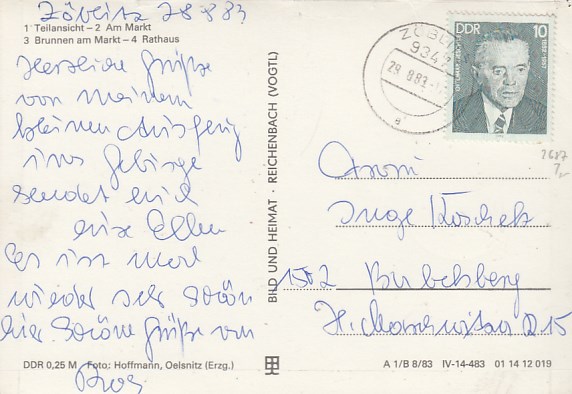 Zöblitz 28 8 83
1 Teilansicht – 2 Am Markt
3 Brunnen am Markt – 4 Rathaus
Herzliche Grüße
von meinem
kleinen Ausflug
ins Gebirge
sendet euch
eure Ellen
Es ist mal
wieder sehr schön
hier. Schöne Grüße von
DDR 0,25 M Foto: Hoffmann, Oelsnitz (Erzg.)
BILD UND HEIMAT · REICHENBACH (VOGTL)
ZÖBLITZ
934
29.8.83
a
DDR 10
Inge
1502 Babelsberg
15
2687
A 1/B 8/83 IV-14-483 01 14 12 019